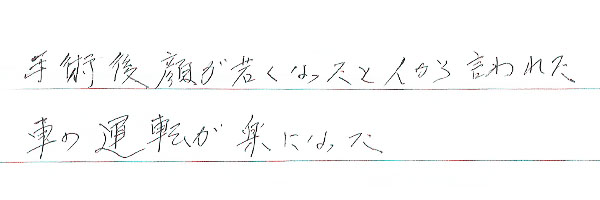 手術後顔が若くなったと人から言われた
車の運転が楽になった